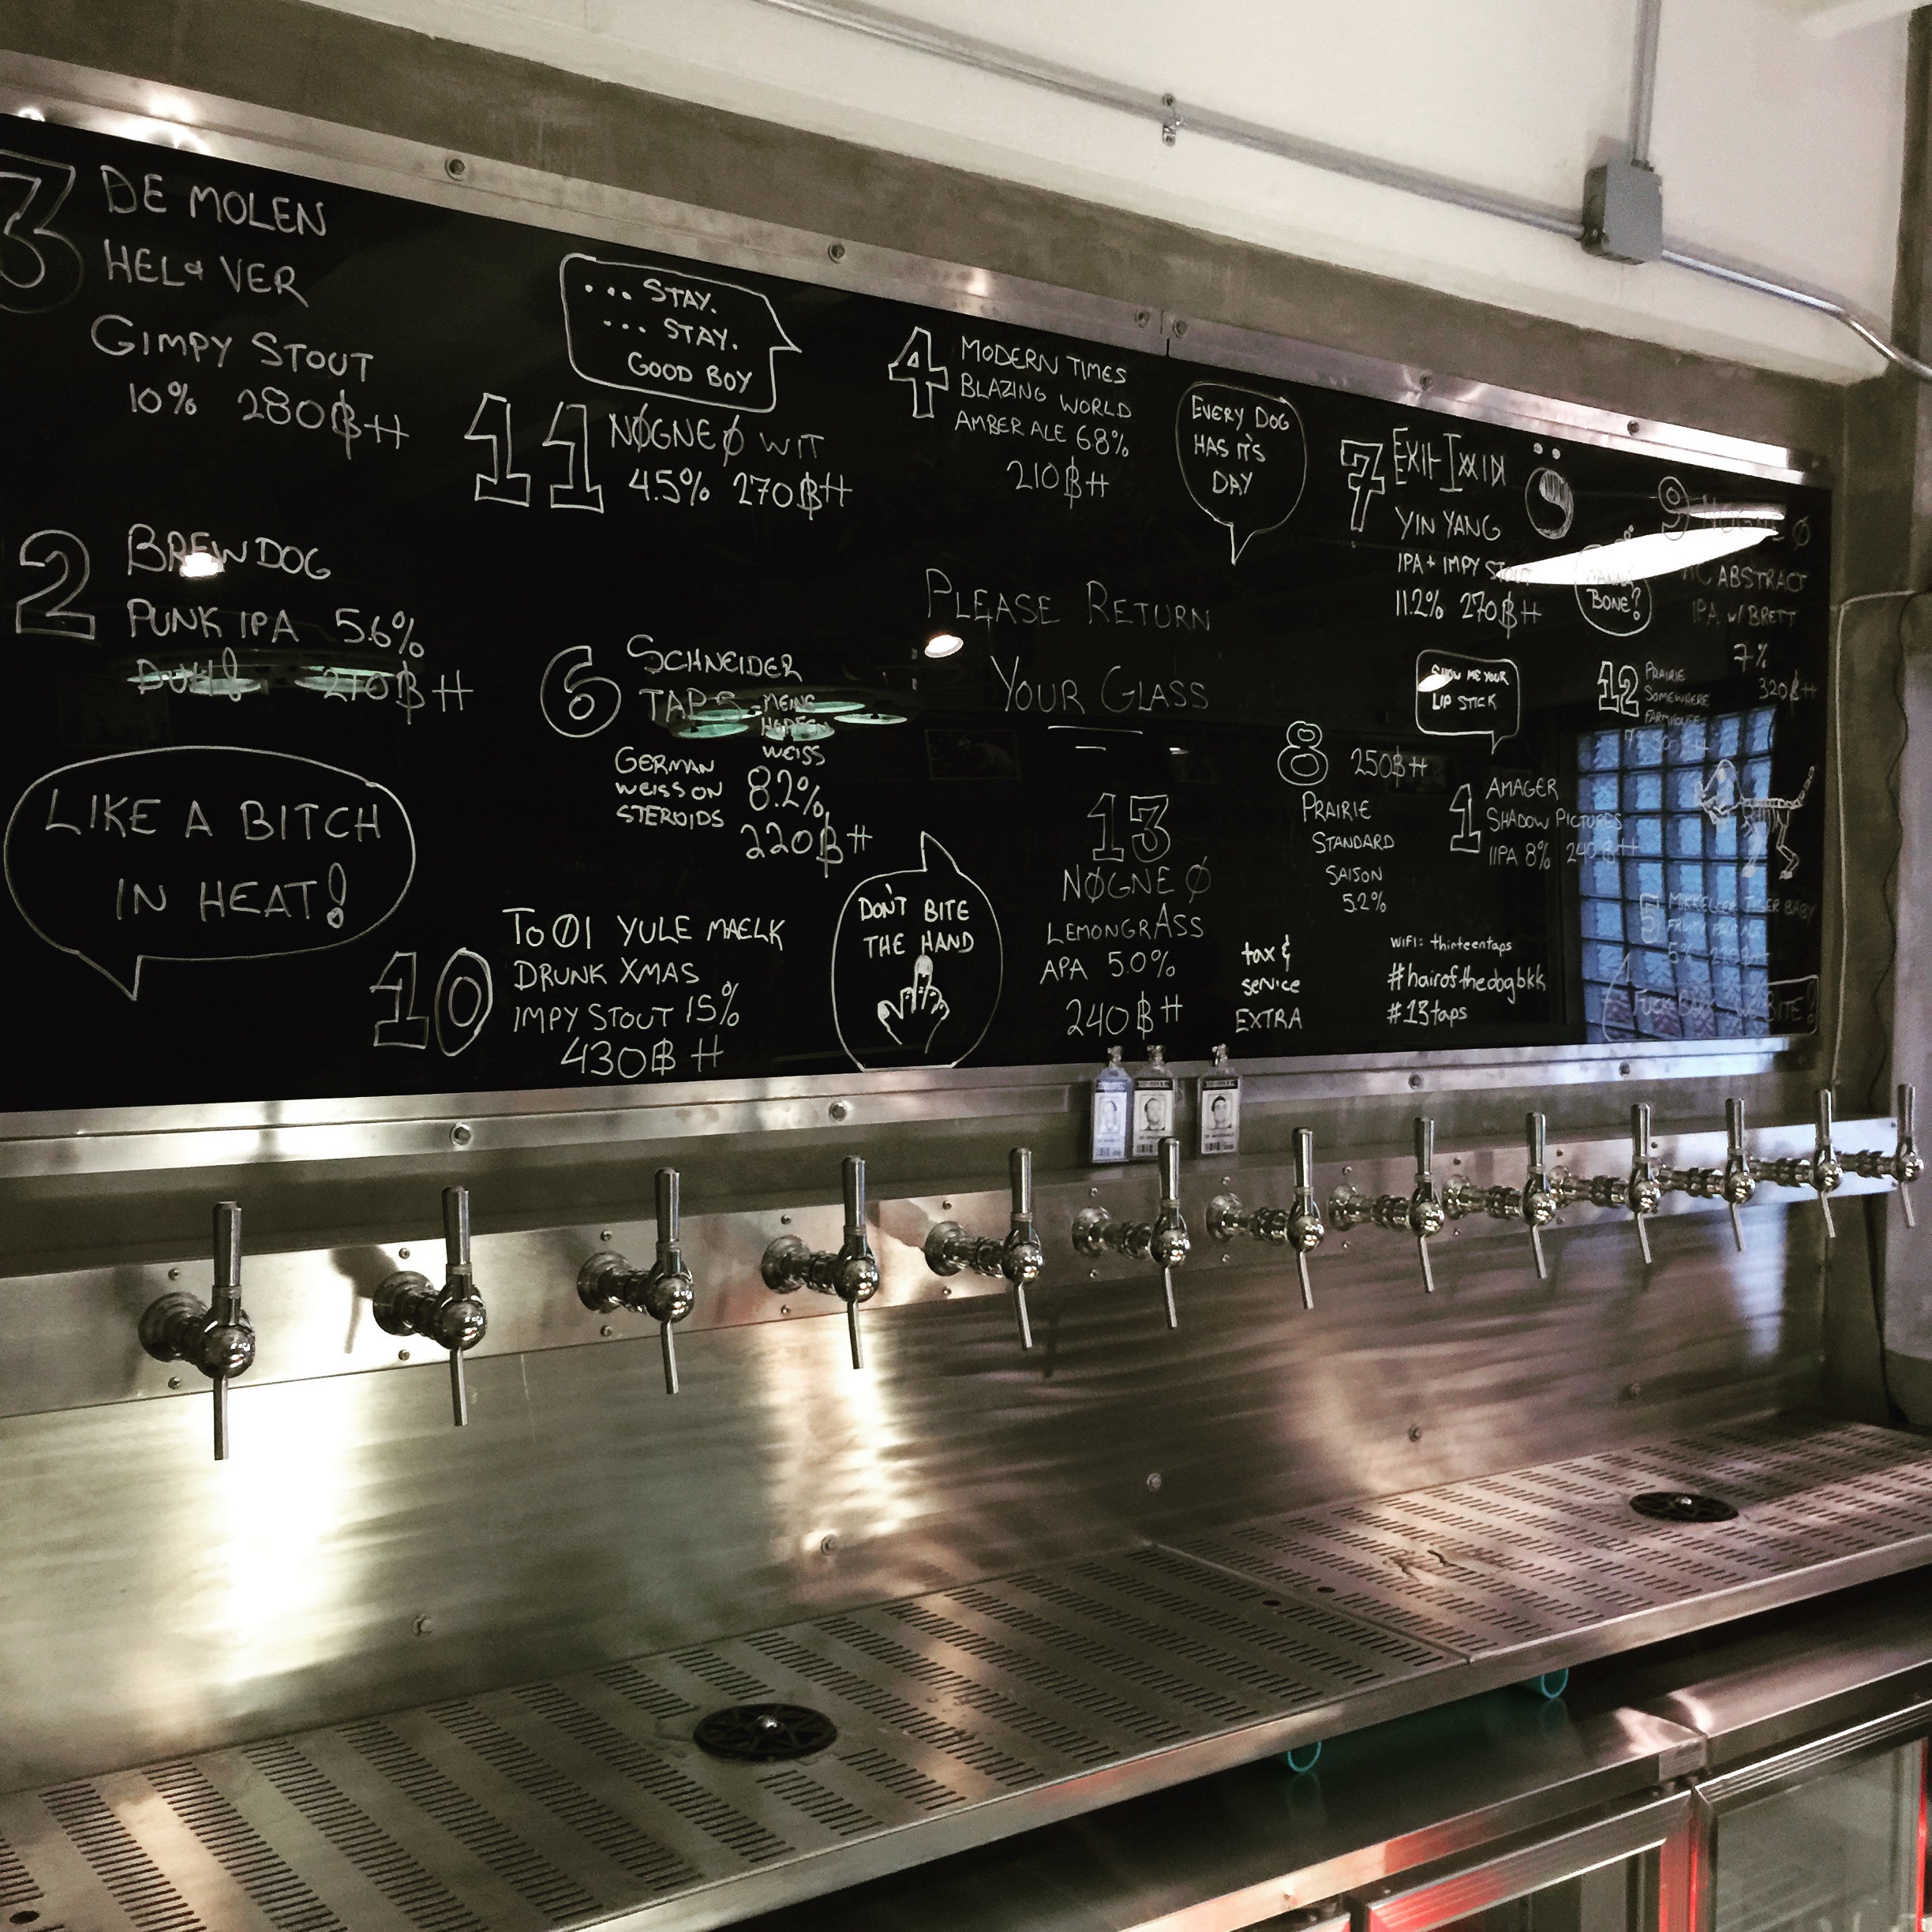 3
DE MOLEN
HEL & VER
GIMPY STOUT
10% 280฿++
2
BREWDOG
PUNK IPA 5.6%
DUH! 210฿++
LIKE A BITCH
IN HEAT!
... STAY.
... STAY.
GOOD BOY
11
NØGNE Ø WIT
4.5% 270฿++
6
SCHNEIDER
TAP 5 MEINE
HOPFEN
WEISS
GERMAN
WEISS ON
STEROIDS
8.2%
220฿++
10
TO ØL YULE MAELK
DRUNK XMAS
IMPY STOUT 15%
430฿++
DON'T BITE
THE HAND
4
MODERN TIMES
BLAZING WORLD
AMBER ALE 6.8%
210฿++
EVERY DOG
HAS IT'S
DAY
PLEASE RETURN
YOUR GLASS
13
NØGNE Ø
LEMONGRASS
APA 5.0%
240฿++
tax &
service
EXTRA
7
YIN YANG
IPA + IMPY STOUT
11.2% 270฿++
BONE?
9
Ø
ABSTRACT
IPA w/ BRETT
7%
320฿++
SHOW ME YOUR
LIP STICK
12
PRAIRIE
SOMEWHERE
FARMHOUSE
8
250฿++
PRAIRIE
STANDARD
SAISON
5.2%
1
AMAGER
SHADOW PICTURES
IIPA 8% 240฿++
WIFI: thirteentaps
#hairofthedogbkk
#13taps
5
MIKKELLER TIGER BABY
BITE!